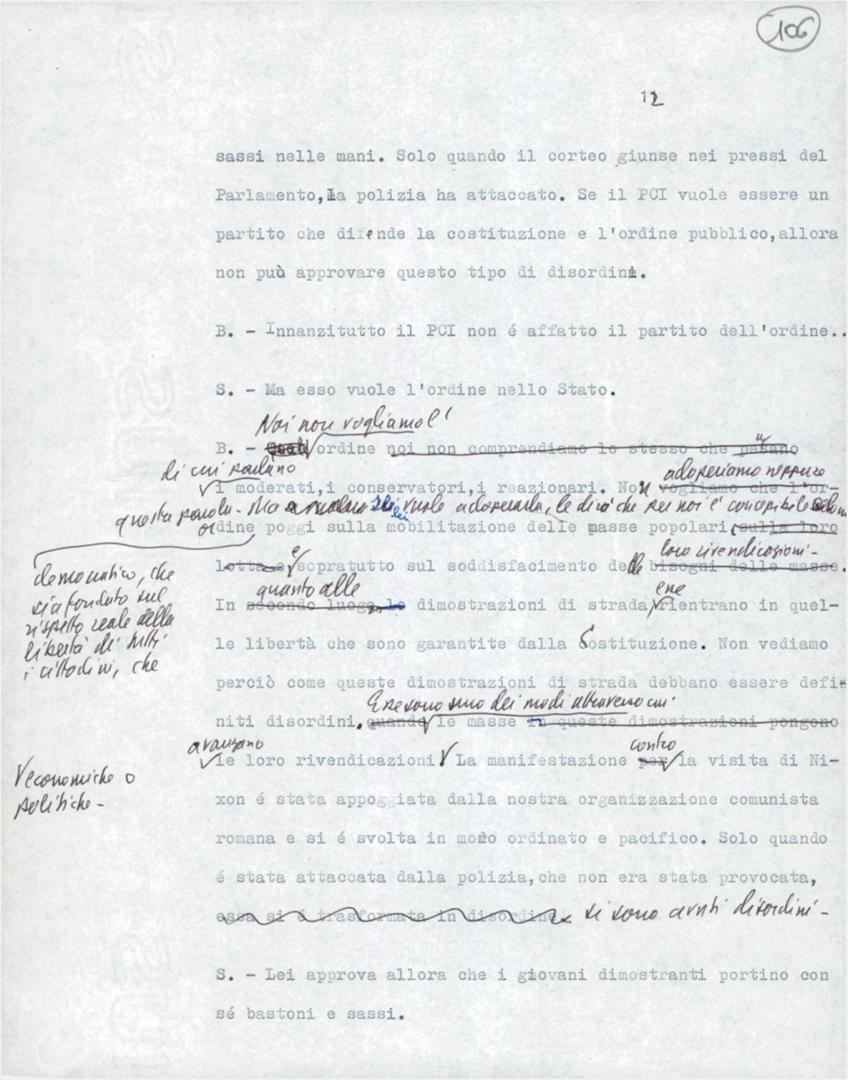 106
12
sassi nelle mani. Solo quando il corteo giunse nei pressi del
Parlamento,la polizia ha attaccato. Se il PCI vuole essere un
partito che difende la costituzione e l'ordine pubblico,allora
non può approvare questo tipo di disordini.
B. - Innanzitutto il PCI non é affatto il partito dell'ordine..
S. - Ma esso vuole l'ordine nello Stato.
Noi non vogliamo l'
B. - Quel ordine noi non comprendiamo lo stesso che
di cui parlano
adoperiamo neppure
i moderati,i conservatori,i reazionari. Non vogliamo che l'or-
questa parola. Ma vuole adoperarla, le dirò che per noi è concepibile solo un
or
dine poggi sulla mobilitazione delle masse popolari, sulla loro
democratico, che
sia fondato sul
rispetto reale della
libertà di tutti
i cittadini, che
e
loro rivendicazioni-
lotta e sopratutto sul soddisfacimento delle bisogni delle masse.
quanto alle
ene
In secondo luogo, le dimostrazioni di strada rientrano in quel-
le libertà che sono garantite dalla Costituzione. Non vediamo
perciò come queste dimostrazioni di strada debbano essere defi-
Esse sono uno dei modi attraverso cui
niti disordini. quando le masse in queste dimostrazioni pongono
avanzano
contro
le loro rivendicazioni La manifestazione per la visita di Ni-
economiche o
politiche-
xon é stata appoggiata dalla nostra organizzazione comunista
romana e si é svolta in modo ordinato e pacifico. Solo quando
é stata attaccata dalla polizia,che non era stata provocata,
essa si é trasformata in disordine. si sono avuti disordini-
S. - Lei approva allora che i giovani dimostranti portino con
sé bastoni e sassi.